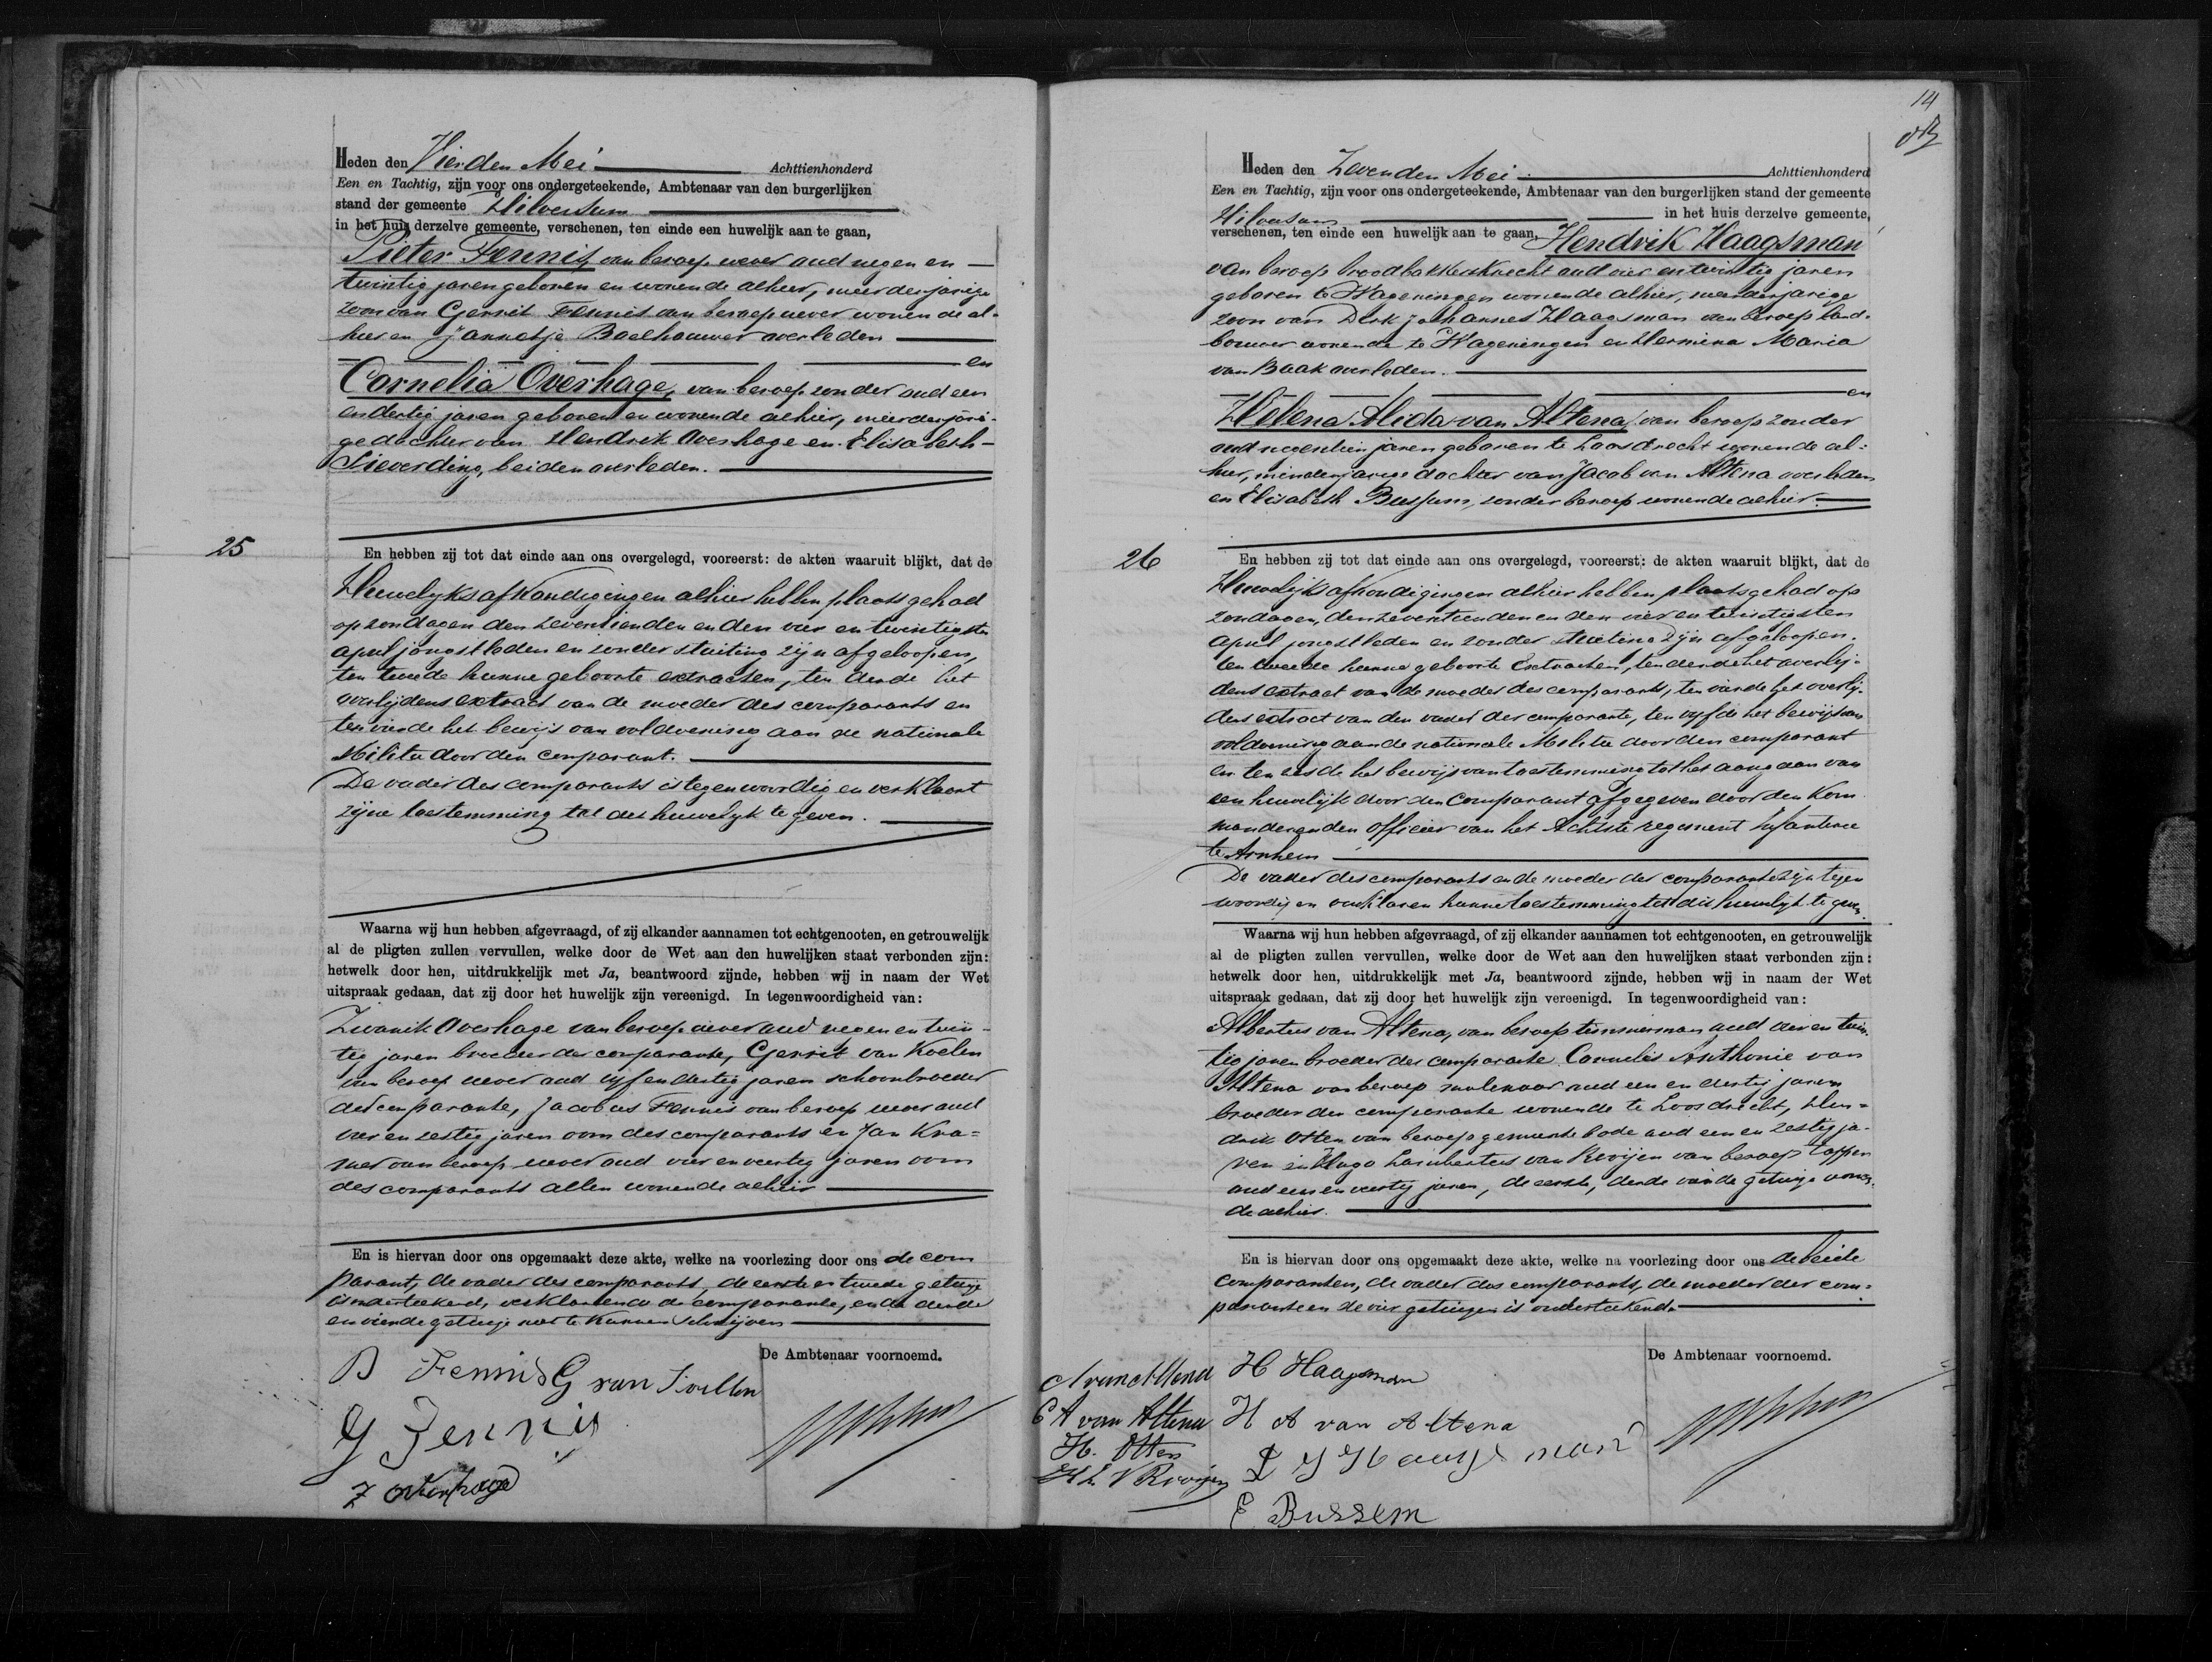 Heden den Vierden Mei Achttienhonderd
Een en Tachtig, zijn voor ons ondergeteekende, Ambtenaar van den burgerlijken
stand der gemeente Hilversum
in het huis derzelve gemeente, verschenen, ten einde een huwelijk aan te gaan,
Pieter Fennis, van beroep wever oud negen en
twintig jaren geboren en wonende alhier, meerderjarige
zoon van Gerrit Fennis van beroep wever wonende al-
hier en Jannetje Baelhouwer overleden
en
Cornelia Overhage, van beroep zonder oud een
en dertig jaren geboren en wonende alhier, meerderjari-
ge dochter van Hendrik Overhage en Elisabeth
Sieverding, beiden overleden.
25
En hebben zij tot dat einde aan ons overgelegd, vooreerst: de akten waaruit blijkt, dat de
Huwelijksafkondigingen alhier hebben plaats gehad
op zondagen den zeventienden en den vier en twintigsten
april jongstleden en zonder stuiting zijn afgeloopen,
ten tweede hunne geboorte extracten, ten derde het
overlijdens extract van de moeder des comparants en
ten vierde het bewijs van voldoening aan de nationale
Militie door den comparant.
De vader des comparants is tegenwoordig en verklaart
zijne toestemming tot dit huwelijk te geven.
Waarna wij hun hebben afgevraagd, of zij elkander aannamen tot echtgenooten, en getrouwelijk
al de pligten zullen vervullen, welke door de Wet aan den huwelijken staat verbonden zijn:
hetwelk door hen, uitdrukkelijk met Ja, beantwoord zijnde, hebben wij in naam der Wet
uitspraak gedaan, dat zij door het huwelijk zijn vereenigd. In tegenwoordigheid van:
Zwanik Overhage van beroep wever oud negen en twin-
tig jaren broeder der comparante, Gerrit van Koelen
van beroep wever oud vijf en dertig jaren schoonbroeder
der comparante, Jacobus Fennis van beroep wever oud
vier en zestig jaren oom des comparants en Jan Kra=
mer van beroep wever oud vier en veertig jaren oom
des comparants allen wonende alhier
En is hiervan door ons opgemaakt deze akte, welke na voorlezing door ons de com
parant, de vader des comparants, de eerste en tweede getuige
is onderteekend, verklarende de comparante, en de derde
en vierde getuige niet te kunnen schrijven
De Ambtenaar voornoemd.
Fennis G van
G Fennis
Z Overhage
14
Heden den Zevenden Mei Achttienhonderd
Een en Tachtig, zijn voor ons ondergeteekende, Ambtenaar van den burgerlijken stand der gemeente
Hilversum in het huis derzelve gemeente,
verschenen, ten einde een huwelijk aan te gaan, Hendrik Haagsman
van beroep broodbakkersknecht oud vier en twintig jaren
geboren te Wageningen wonende alhier, meerderjarige
zoon van Derk Johannes Haagsman van beroep land-
bouwer wonende te Wageningen en Hermina Maria
van Baak overleden.
en
Helena Alida van Altena, van beroep zonder
oud negentien jaren geboren te Loosdrecht wonende al-
hier, minderjarige dochter van Jacob van Altena overleden
en Elisabeth Bussum, zonder beroep wonende alhier.
26
En hebben zij tot dat einde aan ons overgelegd, vooreerst: de akten waaruit blijkt, dat de
Huwelijksafkondigingen alhier hebben plaats gehad op
zondagen, den zeventienden en den vier en twintigsten
april jongstleden en zonder stuiting zijn afgeloopen.
ten tweede hunne geboorte Extracten, ten derde het overlij-
dens extract van de moeder des comparants, ten vierde het overlij-
dens extract van den vader der comparante, ten vijfde het bewijs van
voldoening aan de nationale Militie door den comparant
en ten zesde het bewijs van toestemming tot het aangaan van
een huwelijk door den Comparant afgegeven door den Kom
manderenden Officier van het Achtste regiment Infanterie
te Arnhem
De vader des comparants en de moeder der comparante zijn tegen
woordig en verklaren hunne toestemming tot dit huwelijk te geven.
Waarna wij hun hebben afgevraagd, of zij elkander aannamen tot echtgenooten, en getrouwelijk
al de pligten zullen vervullen, welke door de Wet aan den huwelijken staat verbonden zijn:
hetwelk door hen, uitdrukkelijk met Ja, beantwoord zijnde, hebben wij in naam der Wet
uitspraak gedaan, dat zij door het huwelijk zijn vereenigd. In tegenwoordigheid van:
Albertus van Altena, van beroep timmerman oud vier en twin-
tig jaren broeder der comparante Cornelis Anthonie van
Altena van beroep molenaar oud een en dertig jaren
broeder der comparante wonende te Loosdrecht, Hen=
drik Otten van beroep gemeente bode oud een en zestig ja-
ren en Hugo Lambertus van Rooijen van beroep tapper
oud een en veertig jaren, de eerste, derde vierde getuige wonen-
de alhier.
En is hiervan door ons opgemaakt deze akte, welke na voorlezing door ons de beide
comparanten, de vader des comparants, de moeder der com=
parante en de vier getuigen is onderteekend.
De Ambtenaar voornoemd.
A van Altena H Haagsman
C A van Altena H A van Altena
H. Otten D J Haagsman
H L V Rooijen
E Bussem